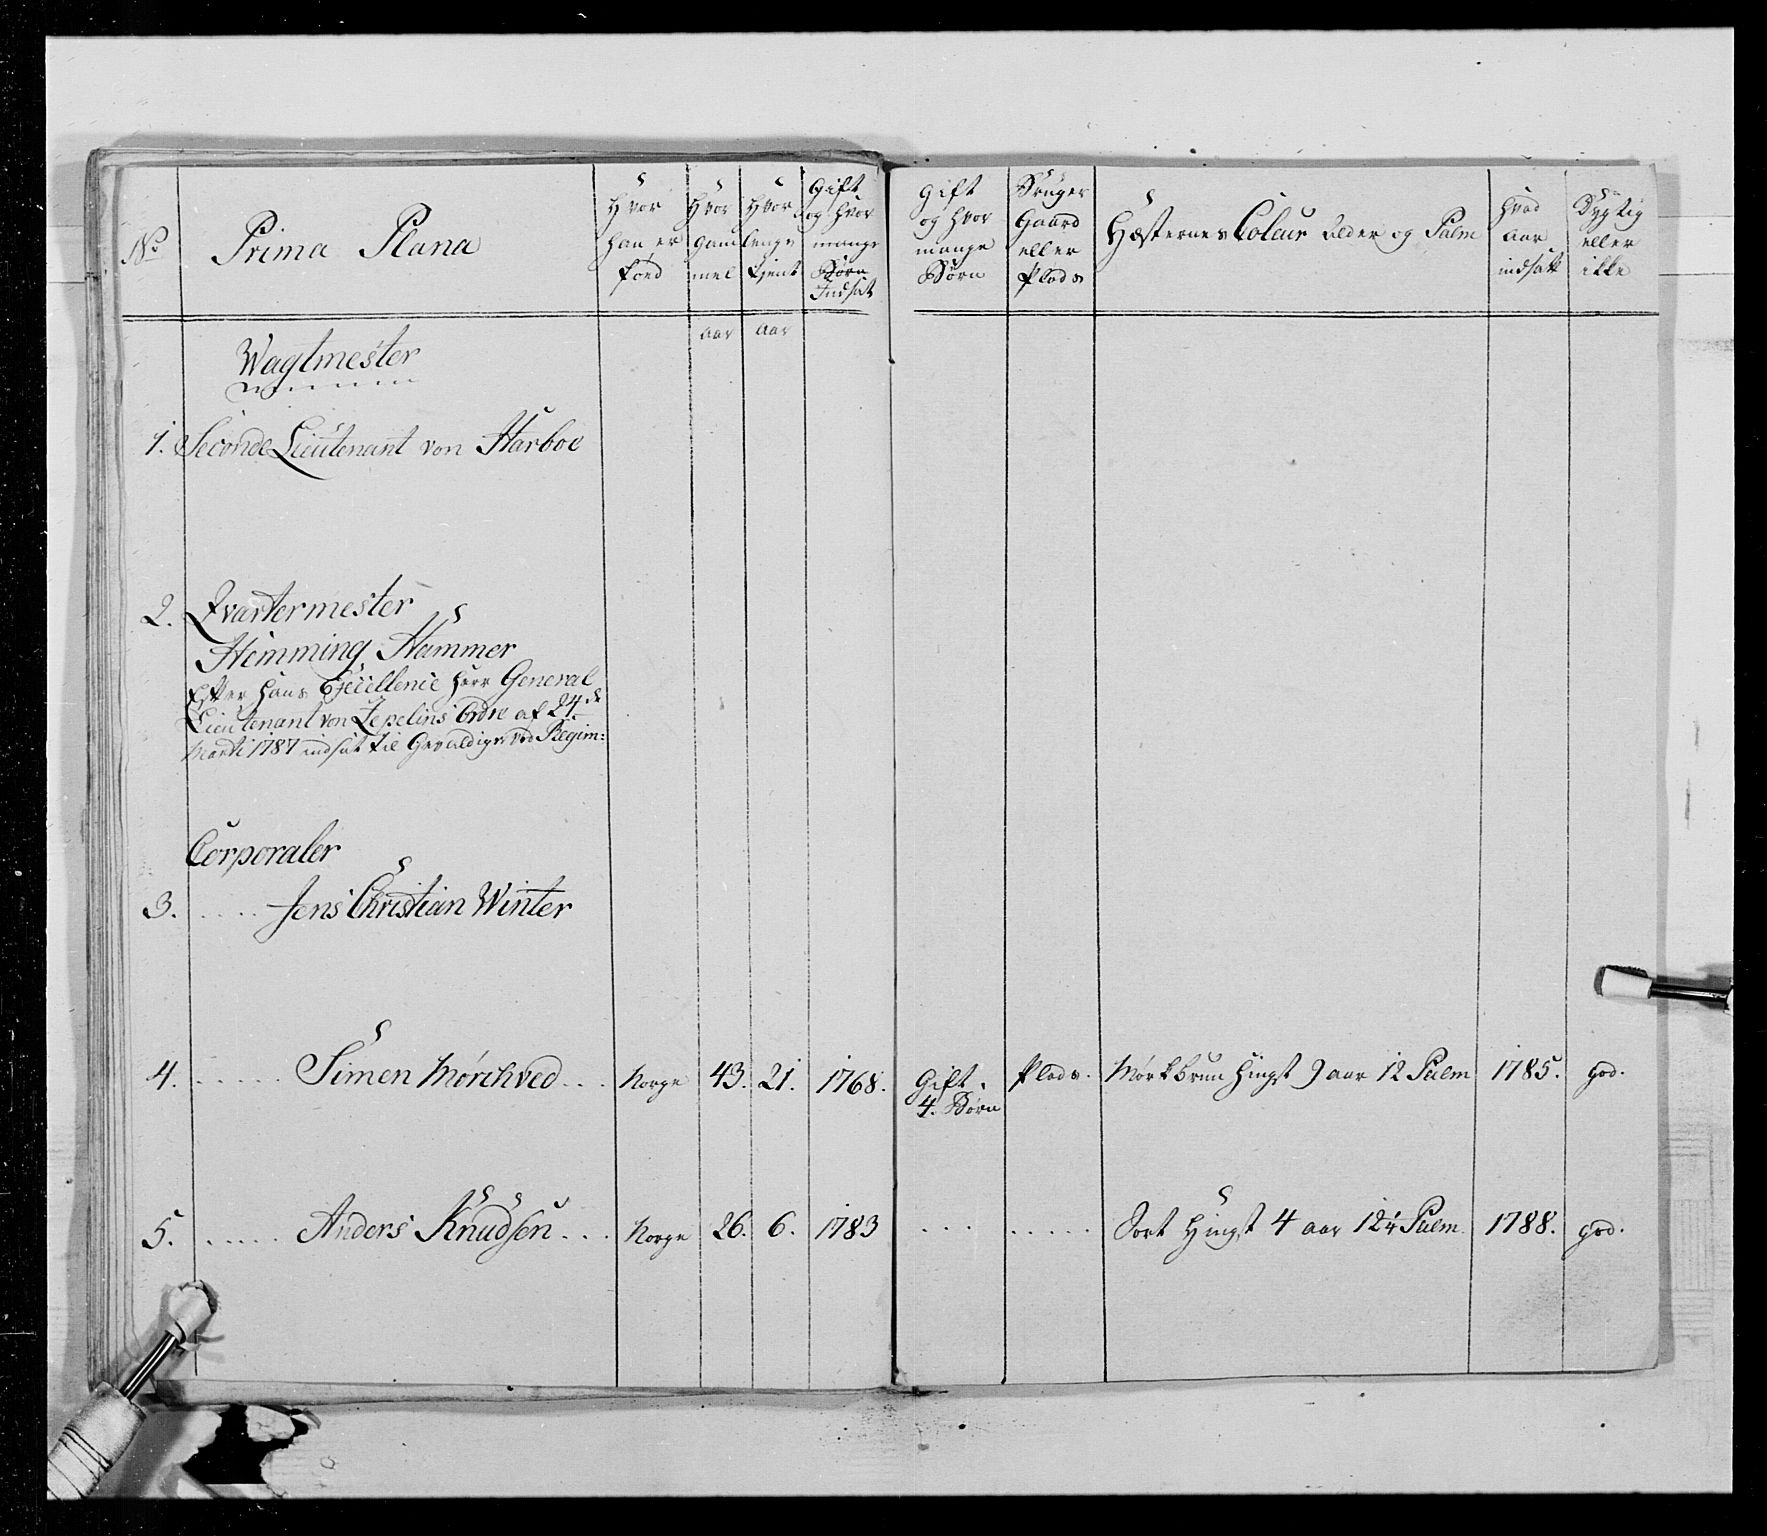 No
Prima Plana
Hvor
han er
föed
Hvor
gam
mel
Hvor
lenge
tjent
Gift
og hvor
mange
Börn
Indsat
Gift
og hvor
mange
Börn
Bruger
Gaard
eller
Plads
Hæsternes Coleur Alder og Palm
hvad
aar
indsatt
Dygtig
eller
ikke
aar aar
Wagtmester
1. Seconde Lieutenant von Harboe
2. Qvartermester
Hemming Hammer
Efter Hans Excellence Herr General
Lieutenant von Zepelins Ordre af 24de
Marti 1787 indsat til Gevaldiger ved Regim:
Corporaler
3. .... Jens Christian Winter
4. ..... Simen Mörchved ... Norge 43. 21. 1768. Gift. Plads. Mörkbrun Hingst 9 aar 12 Palm 1785. god.
4. Börn
5. ..... Anders Knudsen ... Norge 26. 6. 1783 ... ..... Sort Hingst 4 aar 12¼ Palm. 1788. god.